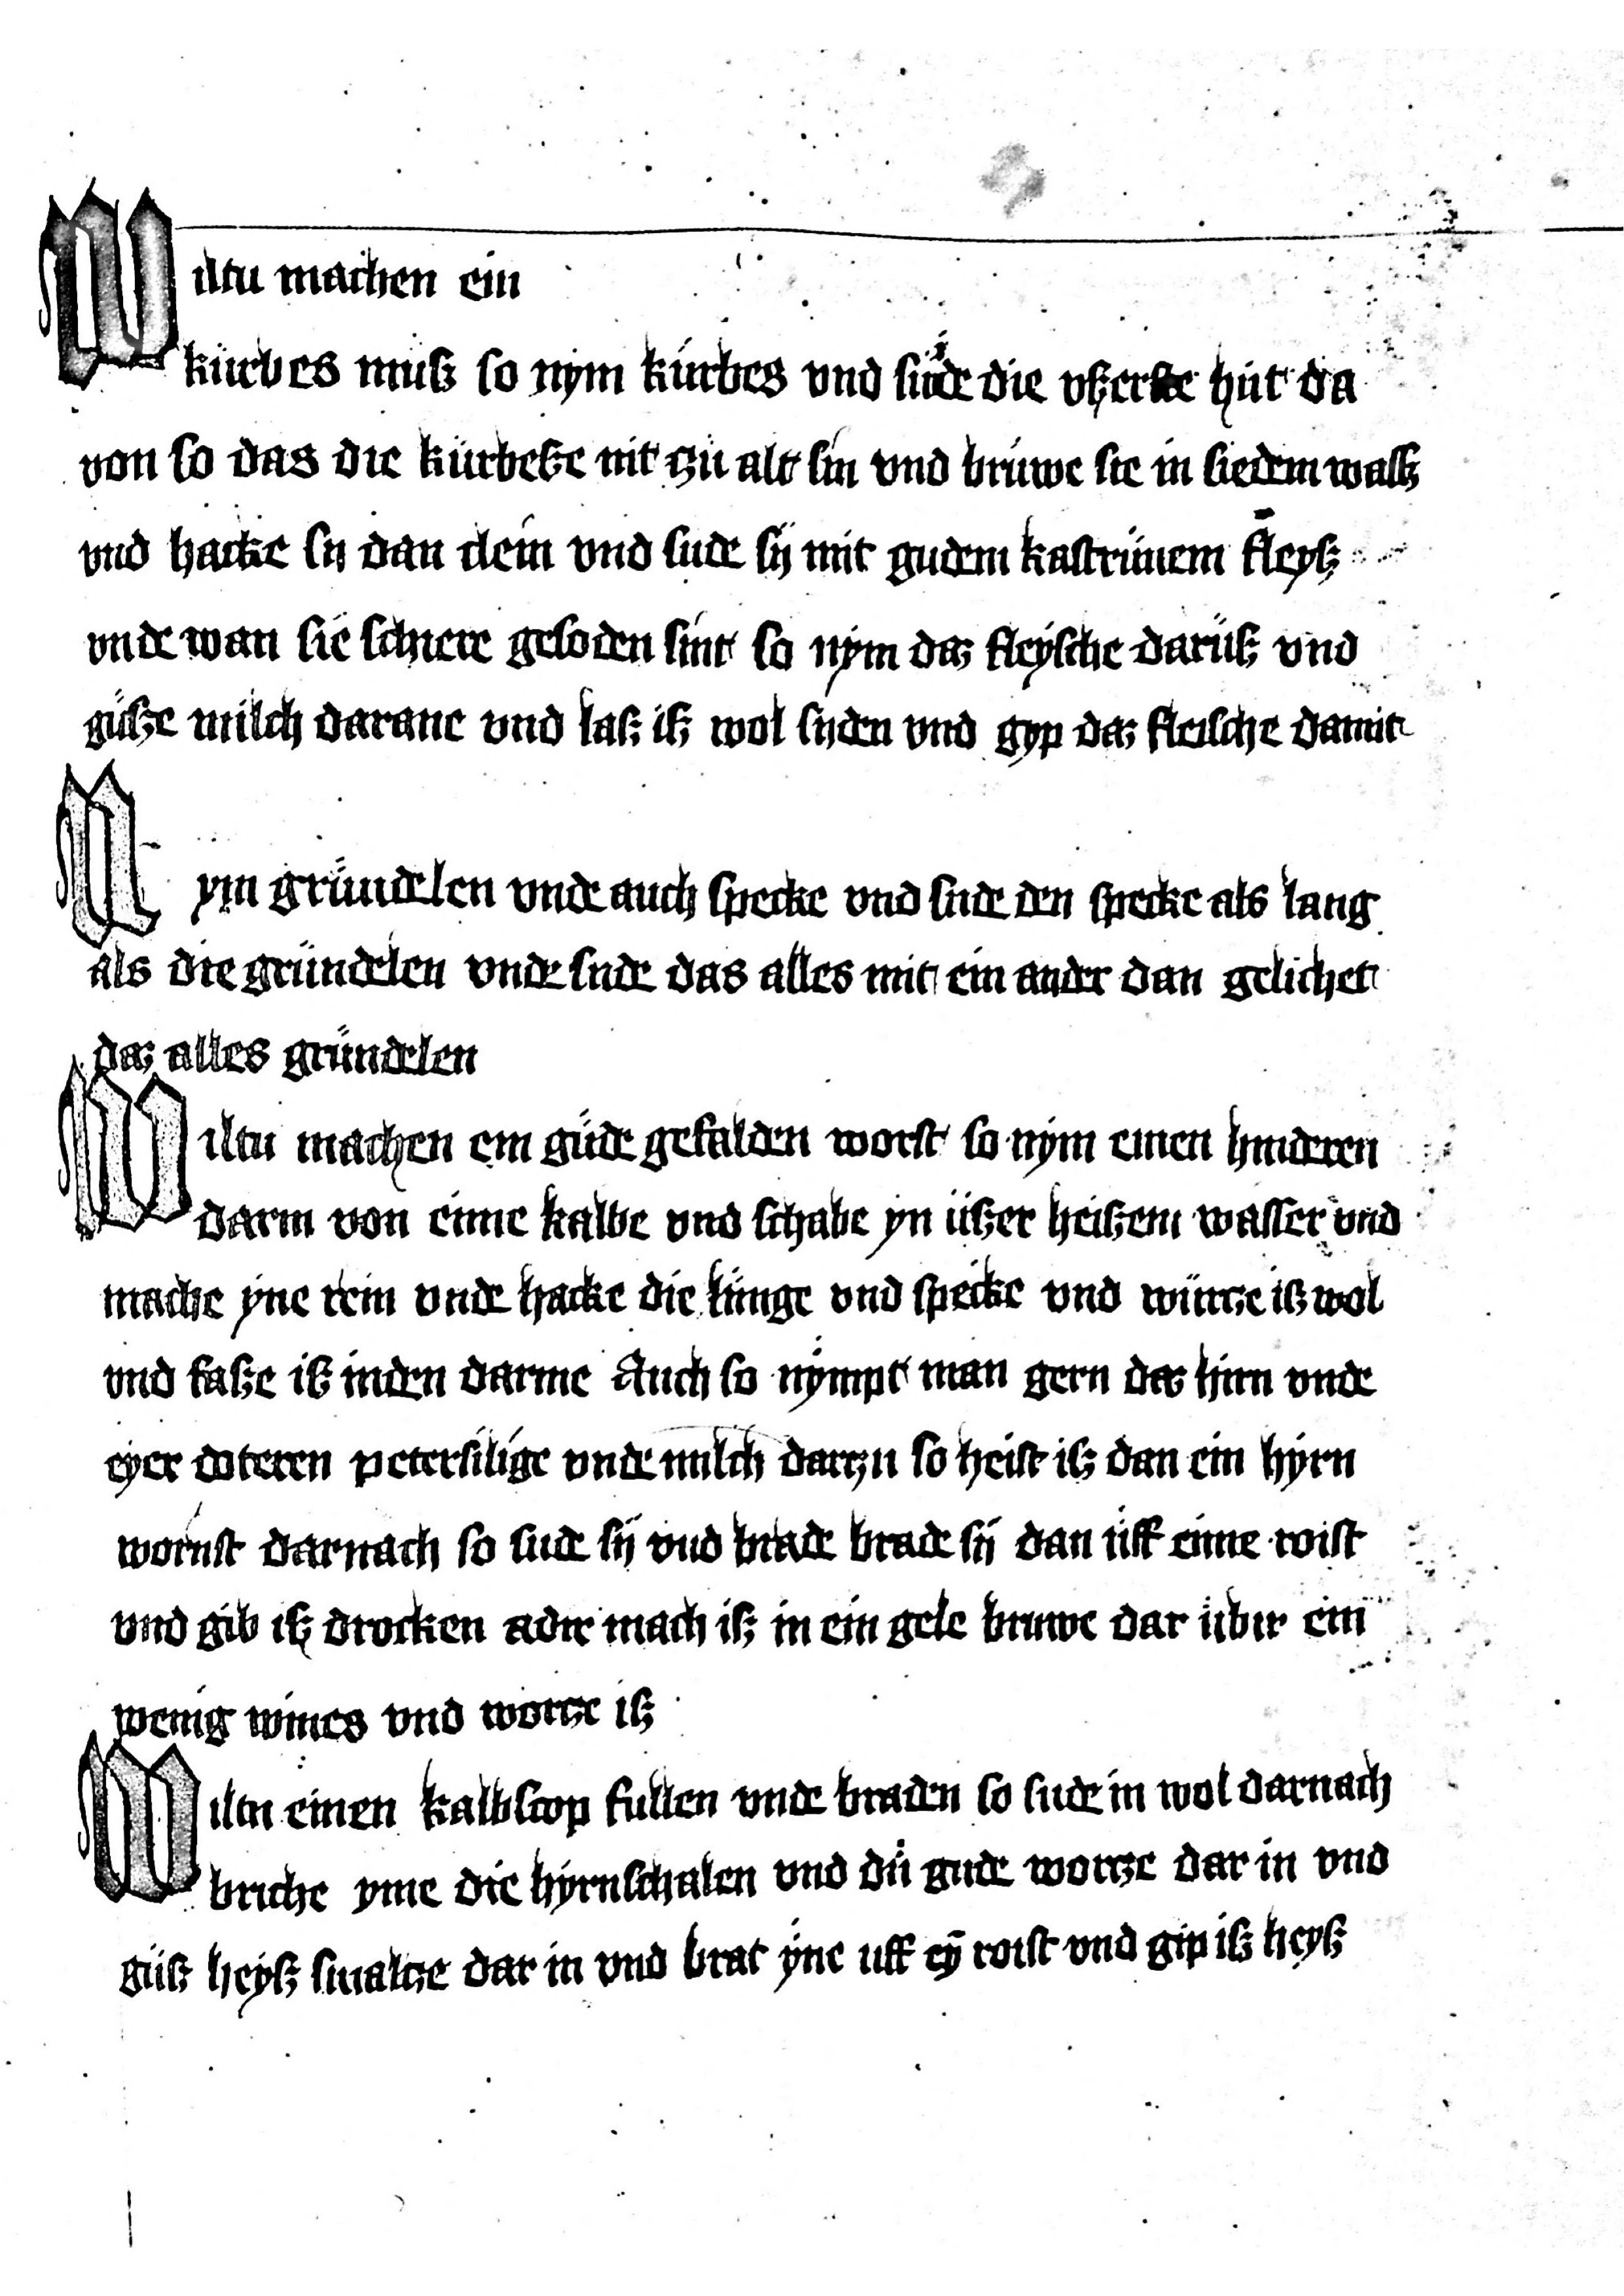 Wiltu machen ein
kürbes muß so nym kürbes vnd sude die vßerste hút da
von so das die kürbeße nit zü alt sin vnd brúwe sie in siedem wass
vnd hacke sij dan clein vnd sude sij mit gudem kastrünem fleyß
vnde wan sie schiere gesoden sint so nym daz fleysche darüß vnd
güße milch darane vnd laß iß wol syden vnd gyp daz fleische damit
Nym gründelen vnde auch specke vnd snde den specke als lang
als die gründelen vnde snde das alles mit ein ander dan gelichet
daz alles gründelen
Wiltu machen ein gúde gefalden worst so nym einen hinderen
darm von eime kalbe vnd schabe yn üßer heißem wasser vnd
mache yne rein vnde hacke die lünge vnd specke vnd würtze iß wol
vnd faße iß in den darme Auch so nympt man gern daz hirn vnde
eyer doteren petersilige vnde milch dartzu so heist iß dan ein hyrn
wornst darnach so sude sij vnd brade brade sij dan üff eime roist
vnd gib iß drocken adir mach iß in ein gele bruwe dar übir ein
wenig wines vnd wortze iß
Wiltu einen kalbscop fullen vnde braden so sude in wol darnach
briche yme die hyrnschalen vnd dü gude wortze dar in vnd
güß heyß smaltze dar in vnd brat yne uff eȳ roist vnd gip iß heyß